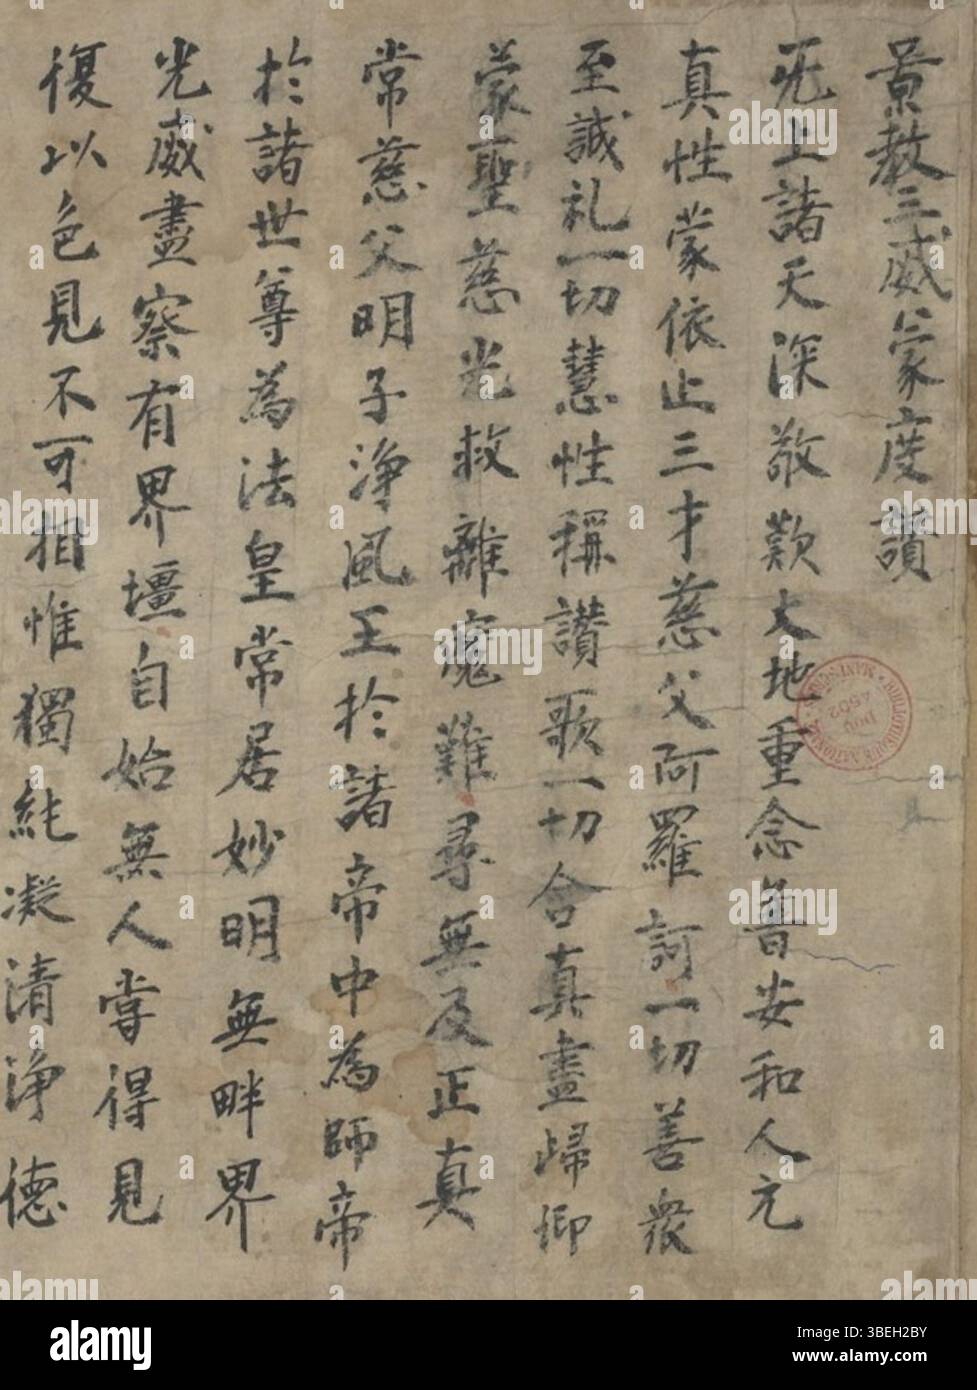 景教三威蒙度讚
无上諸天深敬歎大地重念普安和人元
真性蒙依止三才慈父阿羅訶一切善衆
至誠礼一切慧性稱讚歌一切含真盡歸仰
蒙聖慈光救離魔難尋無及正真
常慈父明子淨風王於諸帝中為師帝
於諸世尊為法皇常居妙明無畔界
光威盡察有界壃自始無人嘗得見
復以色見不可相惟獨純凝清淨德
BIBLIOTHEQUE NATIONALE MANUSCRITS
DON 4502
alamy
Image ID: 3BEH2BY
www.alamy.com